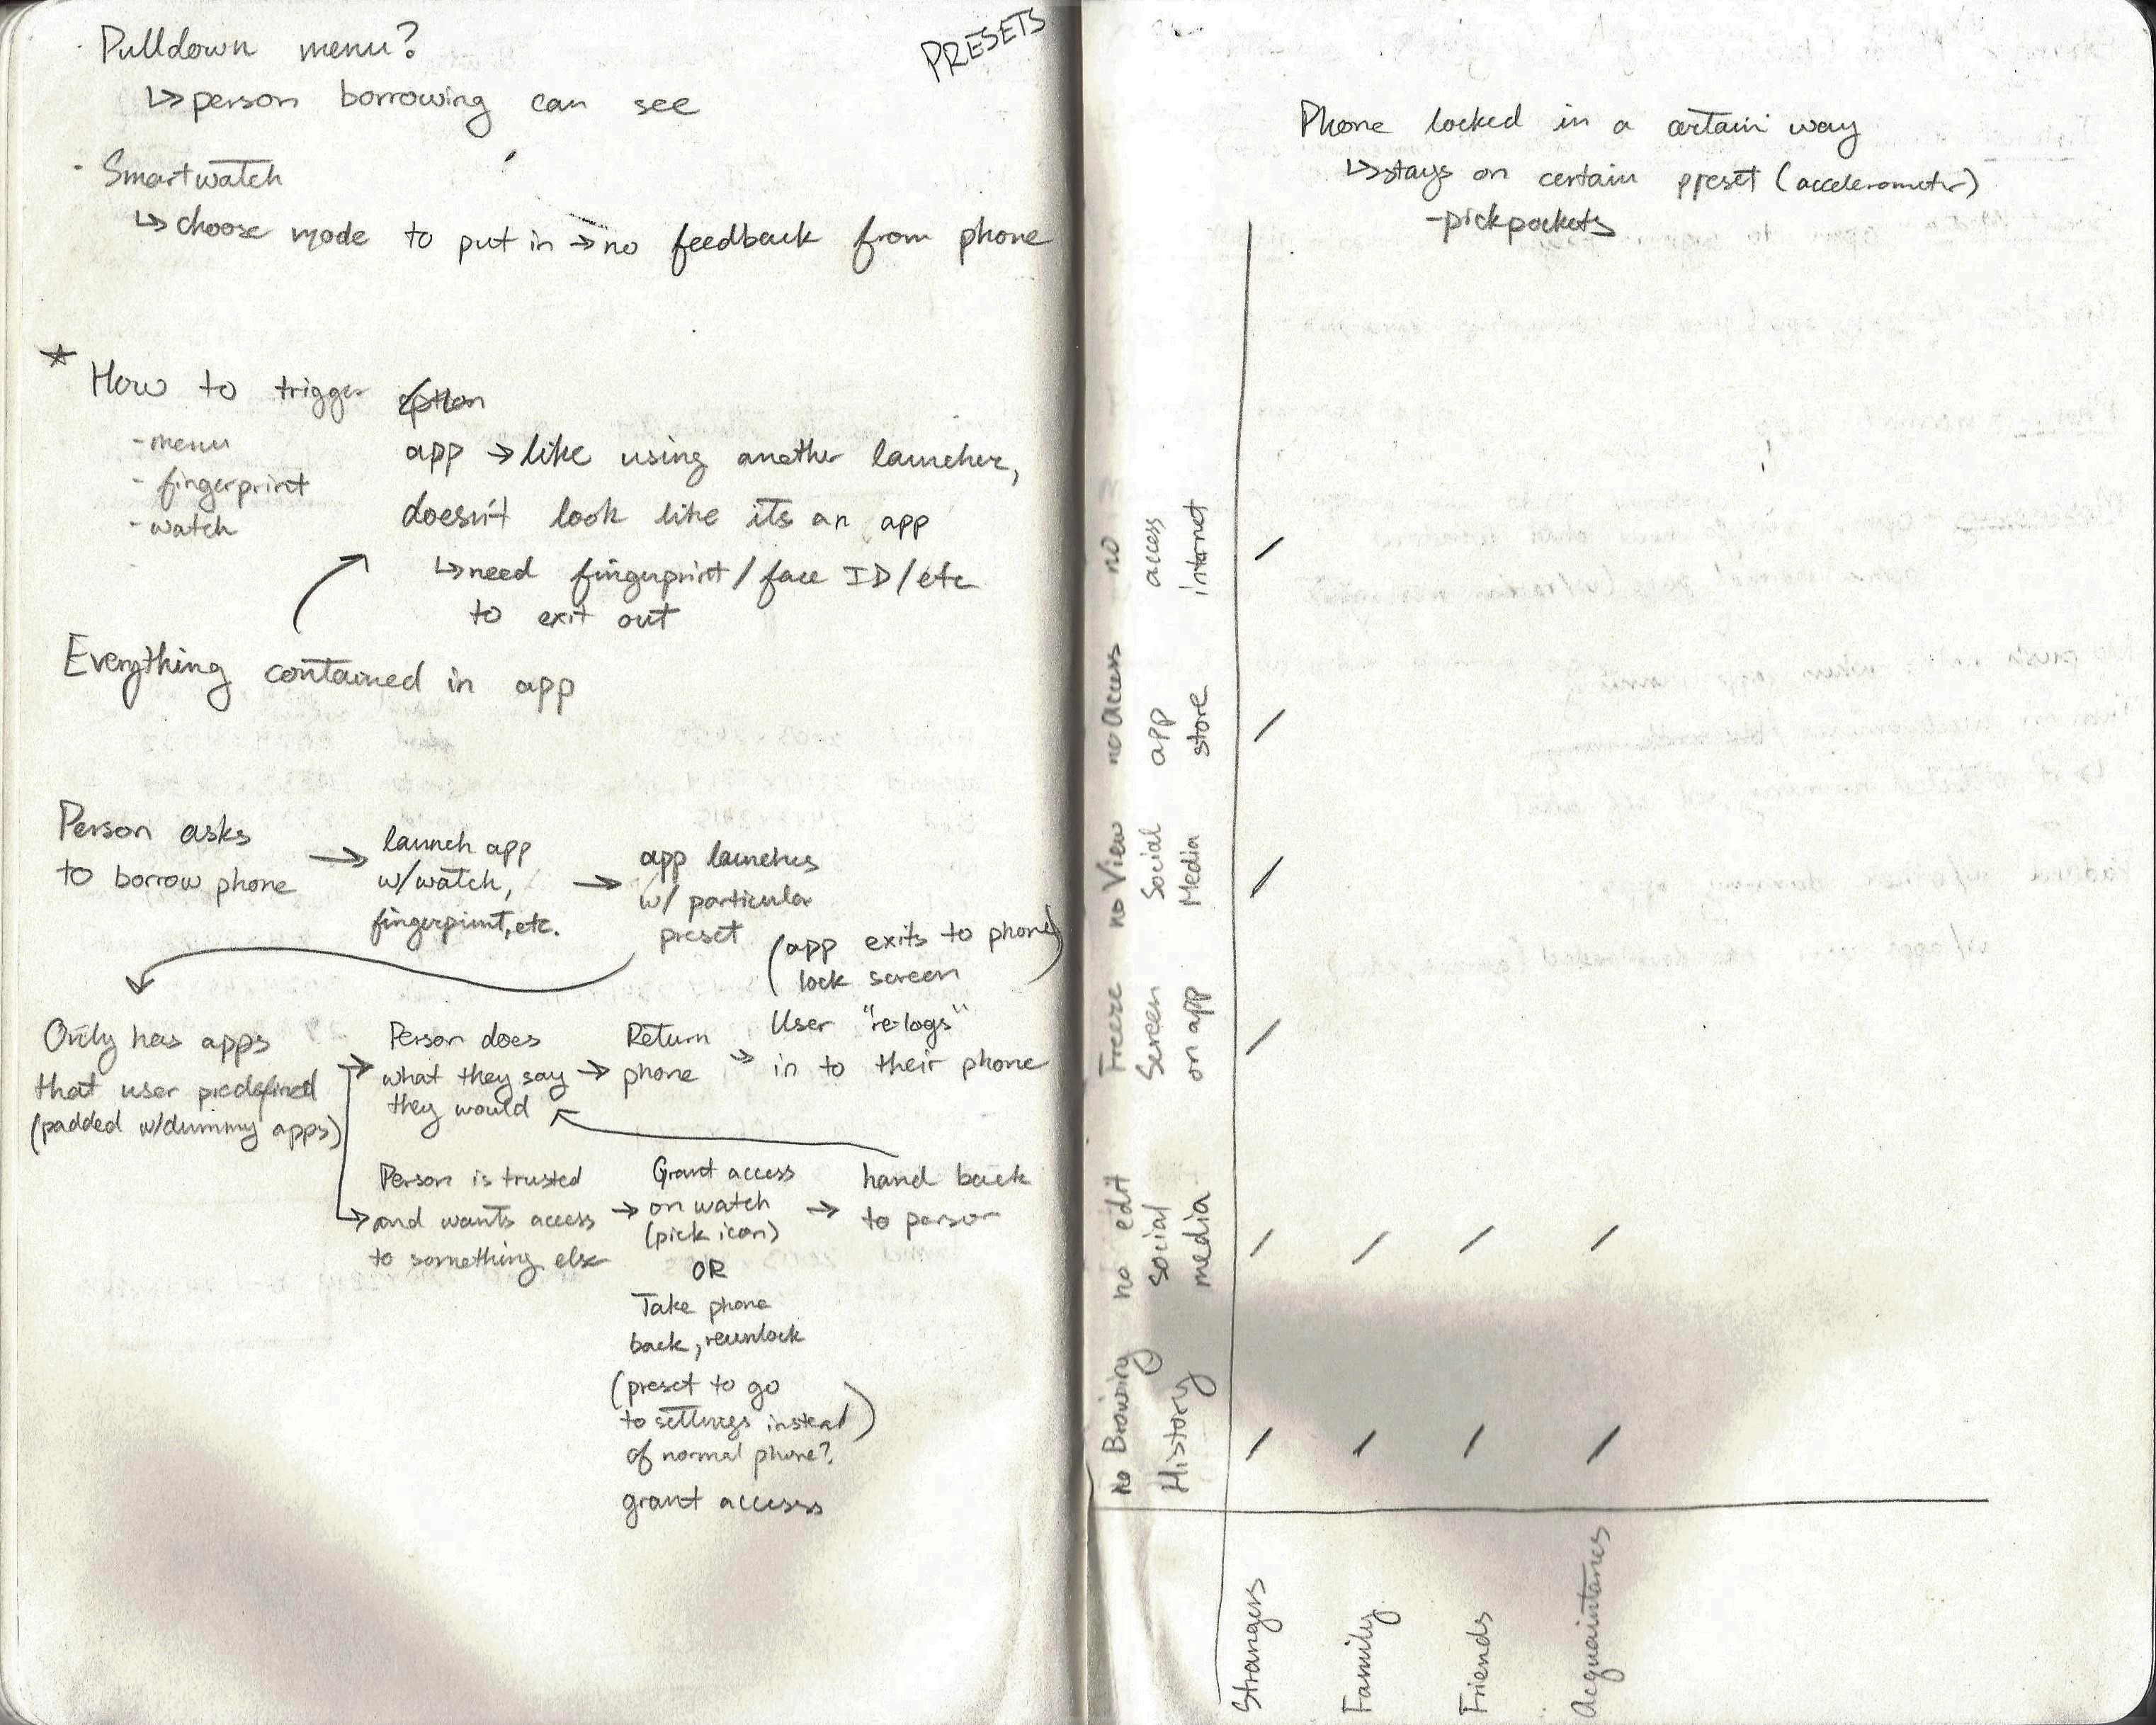 PRESETS
· Pulldown menu?
↳ person borrowing can see
· Smartwatch
↳ choose mode to put in → no feedback from phone
★ How to trigger option
- menu
- fingerprint
- watch
app → like using another launcher,
doesn't look like its an app
↳ need fingerprint / face ID / etc
to exit out
Everything contained in app
Person asks
to borrow phone
→ launch app
w/ watch,
fingerprint, etc.
→ app launches
w/ particular
preset
(app exits to phone)
lock screen
Only has apps
that user predefined
(padded w/ dummy apps)
→ Person does
what they say
they would
→ Return
phone
→ User "re-logs"
in to their phone
→ Person is trusted
and wants access
to something else
→ Grant access
on watch
(pick icon)
OR
Take phone
back, reunlock
(preset to go
to settings instead)
of normal phone?
grant access
→ hand back
to person
Phone locked in a certain way
↳ stays on certain preset (accelerometer)
- pickpockets
no
access
internet
no Access
app
store
no View
Social
Media
Freeze
Screen
on app
no edit
social
media
No Browsing
History
Strangers
Family
Friends
Acquaintances